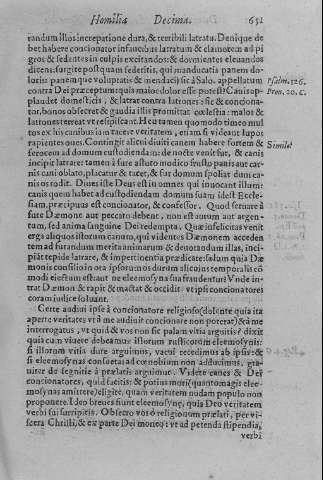 Homilia Decima. 651
randum illos increpatione dura, & terribili latratu. Denique de
bet habere concionator in fauribus latratum & clamorem ad pi
gros & sedentes in culpis excitandos: & dormientes eleuandos
dicens: surgite postquam sederitis, qui manducatis panem do-
loris: panem que voluptatis & mendacij sic à Salo. appellatum
contra Dei præceptum: quis maior dolor esse potest? Canis ap-
plaudet domesticis, & latrat contra latrones: sic & conciona-
tor, bonos obsecret & gaudia illis promittat cœlestia: malos &
latrones terreat vt resipiscant. Heu tamen quo modo timeo mul
tos ex his canibus iam tacere veritatem, etiam si videant lupos
rapientes oues. Contingit alicui diuiti canem habere fortem &
ferocem ad domum custodiendam: de nocte venit fur, & canis
incipit latrare: tamen à fure astuto modico frusto panis aut car-
nis cani oblato, placatur & tacet, & fur domum spoliat dum ca-
nis os rodit. Diues iste Deus est in omnes qui inuocant illum:
canis quem habet ad custodiendam domum suam idest Eccle-
siam, præcipuus est concionator, & confessor. Quod seruare à
fure Dæmone aut peccato debent, non est aurum aut argen-
tum, sed anima sanguine Dei redempta. Quæ infelicitas venit
erga aliquos istorum canum, qui videntes Dæmonem acceden
tem ad furandum merita animarum & deuotandum illas, inci-
piāt tepide latrare, & impertinentia prædicare: solum quia Dæ
monis consilio in ora ipsorum os durum alicuius temporalis cō
modi eiectum est: aut ne eleemosyna sua fraudentur: Vnde in-
trat Dæmon & rapit & mactat & occidit: vt ipsi concionatores
coram iudice soluant.
Certe audiui ipse à concionatore religioso (dolente quia ita
aperte veritates vt à me audiuit concionare non poterat) & à me
interrogatus, vt quid & vos non sic palam vitia arguitis? dixit
quia cum viuere debeamus illorum rusticorum eleemosynis:
si illorum vitia dure arguimus, vacui recedimus ab ipsis: &
si eleemosynas consuetas ad cœnobium non adducimus, gra-
uiter de segnitie à prælatis arguimur. Videte canes & Dei
concionatores, quid facitis: & potius mori (quantomagis elee
mosynas amittere) eligite, quam veritatem nudam populo non
proponere. Ideo breues fiunt eleemosynę, quia Deo veritatem
verbi sui surripitis. Obsecro vos ô religionum prælati, per vi-
scera Christi, & ex parte Dei moneo: vt ad petenda stipendia,
verbi
Psalm. 126.
Prou. 20. C.
Simile.